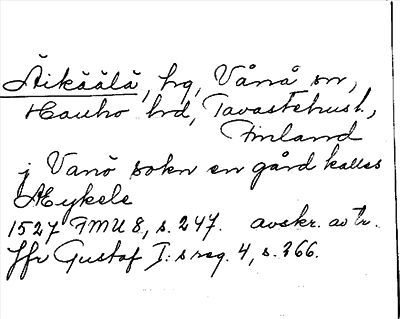 Äikäälä, hg, Vånå sn,
Hauho hd, Tavastehusl.,
Finland
j Vanö sokn en gård kallas
Mykele
1527 FMU 8, s. 247. avskr. av tr.
Jfr Gustaf I:s reg. 4, s. 366.